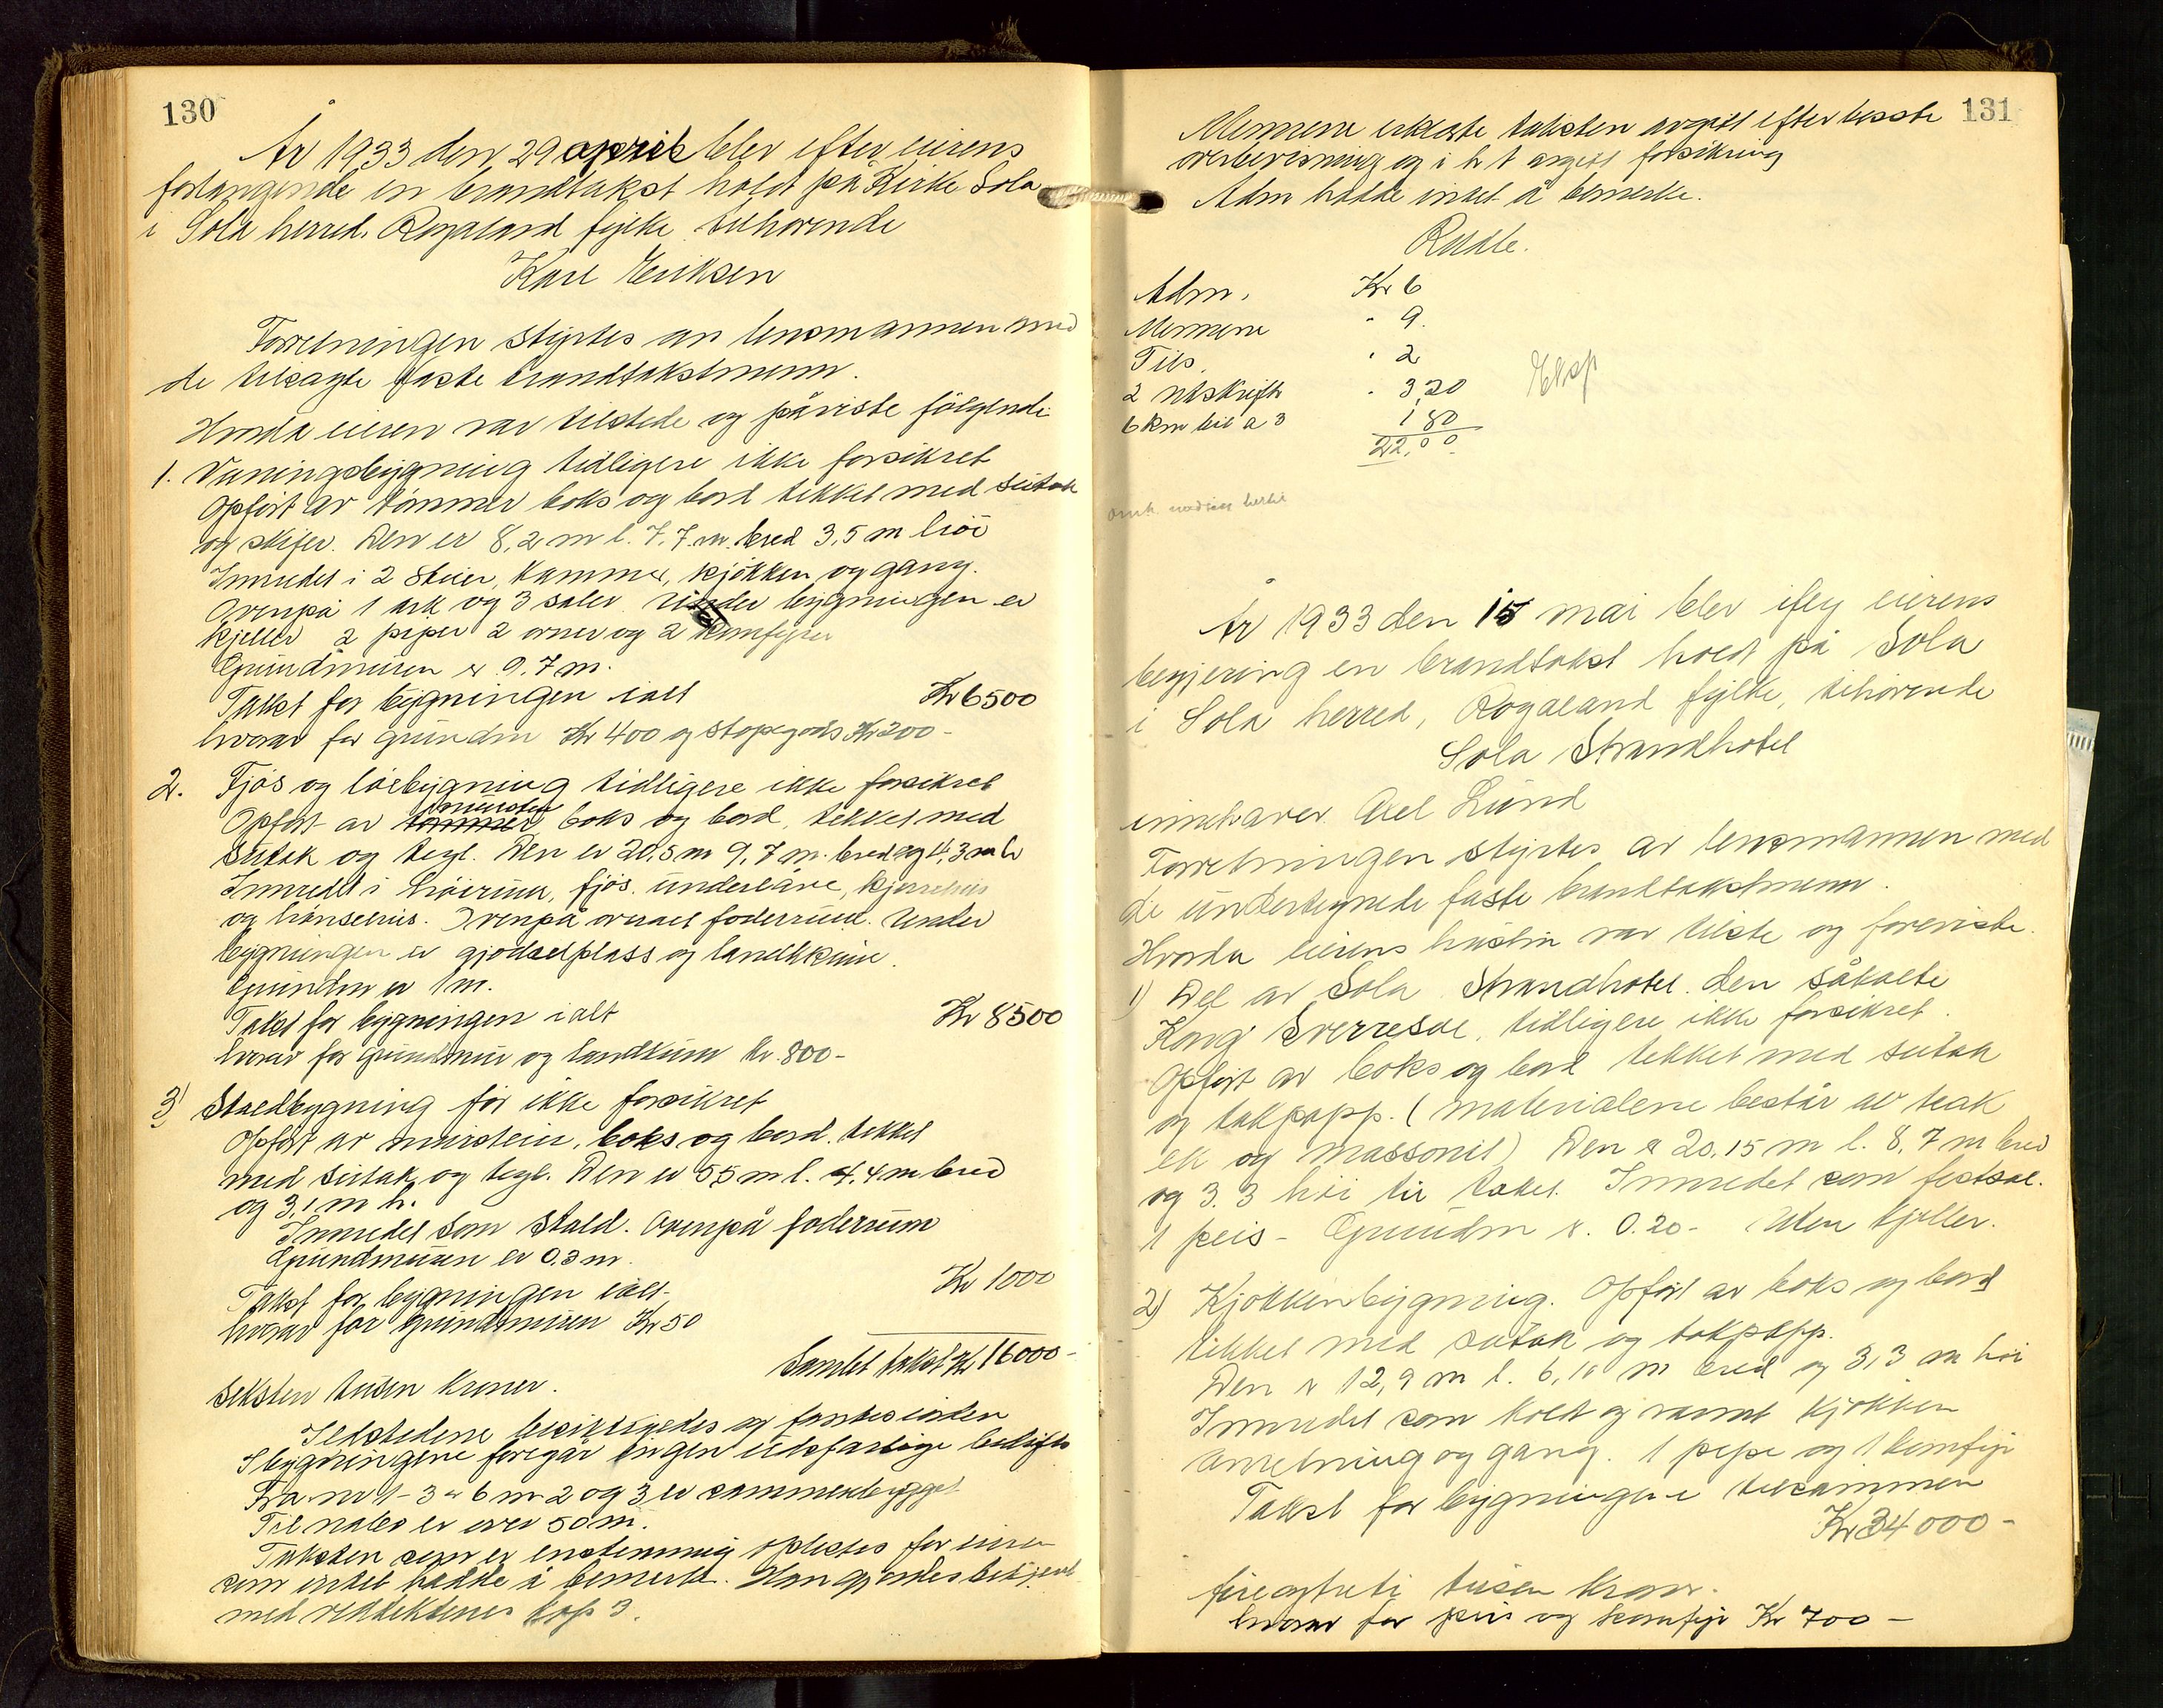 130
År 1933 den 29 april blev efter eierens
forlangende en brandtakst holdt på Kirke Sola
i Sola herred, Rogaland fylke tilhørende
Karl Eriksen
Forretningen styrtes av lensmannen med
de tilsagte faste brandtakstmenn.
Hvorda eieren var tilstede og påviste følgende
1. Våningsbygning tidligere ikke forsikret
Opført av tømmer boks og bord tekket med sutak
og skifer. Den er 8,2 m l. 7,7 m. bred 3,5 m høi
Innredet i 2 stuer, kammer, kjøkken og gang.
Ovenpå 1 ark og 3 saler. Under bygningen er
kjeller 2 piper 2 ovner og 2 komfyrer
Grundmuren er 0.7 m.
Takst for bygningen ialt Kr 6500
hvorav for grundm Kr 400 og støpegods Kr 200-
2. Fjøs og løebygning tidligere ikke forsikret
murstein
Opført av tømmer boks og bord, tekket med
sutak og tegl. Den er 20,5 m 9,7 m. bred og 4,3 m h
Innredet i høirum, fjøs, underlåve, kjerrehus
og hønsehus. Ovenpå overalt foderrum. Under
bygningen er gjødselplass og landkum.
Grundm er 1 m.
Takst for bygningen ialt Kr 8500
hvorav for grundmur og landkum kr. 800-
3) Staldbygning før ikke forsikret
Opført av murstein, boks og bord. tekket
med sutak og tegl. Den er 5,5 m l. 4,4 m bred
og 3,1 m h.
Innredet som stald. Ovenpå foderrum
Grundmuren er 0,3 m.
Takst for bygningen ialt Kr 1000
hvorav for grundmuren Kr 50
Samlet takst Kr 16000-
seksten tusen kroner.
Ildstedene besiktigedes og fantes i orden
I bygningene foregår ingen ildsfarlige bedrifter
Fra nr 1-3 er 6 m 2 og 3 er sammenbygget
Til nabo er over 50 m.
Taksten som er enstemmig oplestes for eieren
som intet hadde å bemerke. Han gjordes bekjent
med vedtektenes kap 3.
131
Mennene erklærte taksten avgitt efter beste
overbevisning og i h t avgitt forsikring
Adm hadde intet å bemerke.
Rettle.
Adm. Kr 6
Mennene " 9.
Tils. " 2
2 utskrifter " 3,20
6 km bil a 3 1 80
22,00
Eksp
År 1933 den 15 mai blev ifølg eierens
begjæring en brandtakst holdt på Sola
i Sola herred, Rogaland fylke, tilhørende
Sola Strandhotel
innehaver Axel Lund
Forretningen styrtes av lensmannen med
de undertegnede faste brandtakstmenn.
Hvorda eierens hustru var tilste og foreviste.
1) Del av Sola Strandhotel. den såkalte
Kong Sverresal, tidligere ikke forsikret.
Opført av boks og bord tekket med sutak
og takpapp. (materialene består av teak
ek og massonit) Den er 20,15 m l. 8,7 m bred
og 3.3 høi til taket. Innredet som festsal.
1 peis - Grundm er. 0.20 - Uten kjeller.
2) Kjøkkenbygning. Opført av boks og bord
tekket med sutak og takpapp.
Den er 12,9 m l. 6,10 m bred og 3,3 m høi
Innredet som koldt og varmt kjøkken
anretning og gang. 1 pipe og 1 komfyr
Takst for bygningene tilsammen
Kr 34000-
fireogtreti tusen kroner.
hvorav for peis og komfyr Kr 700-